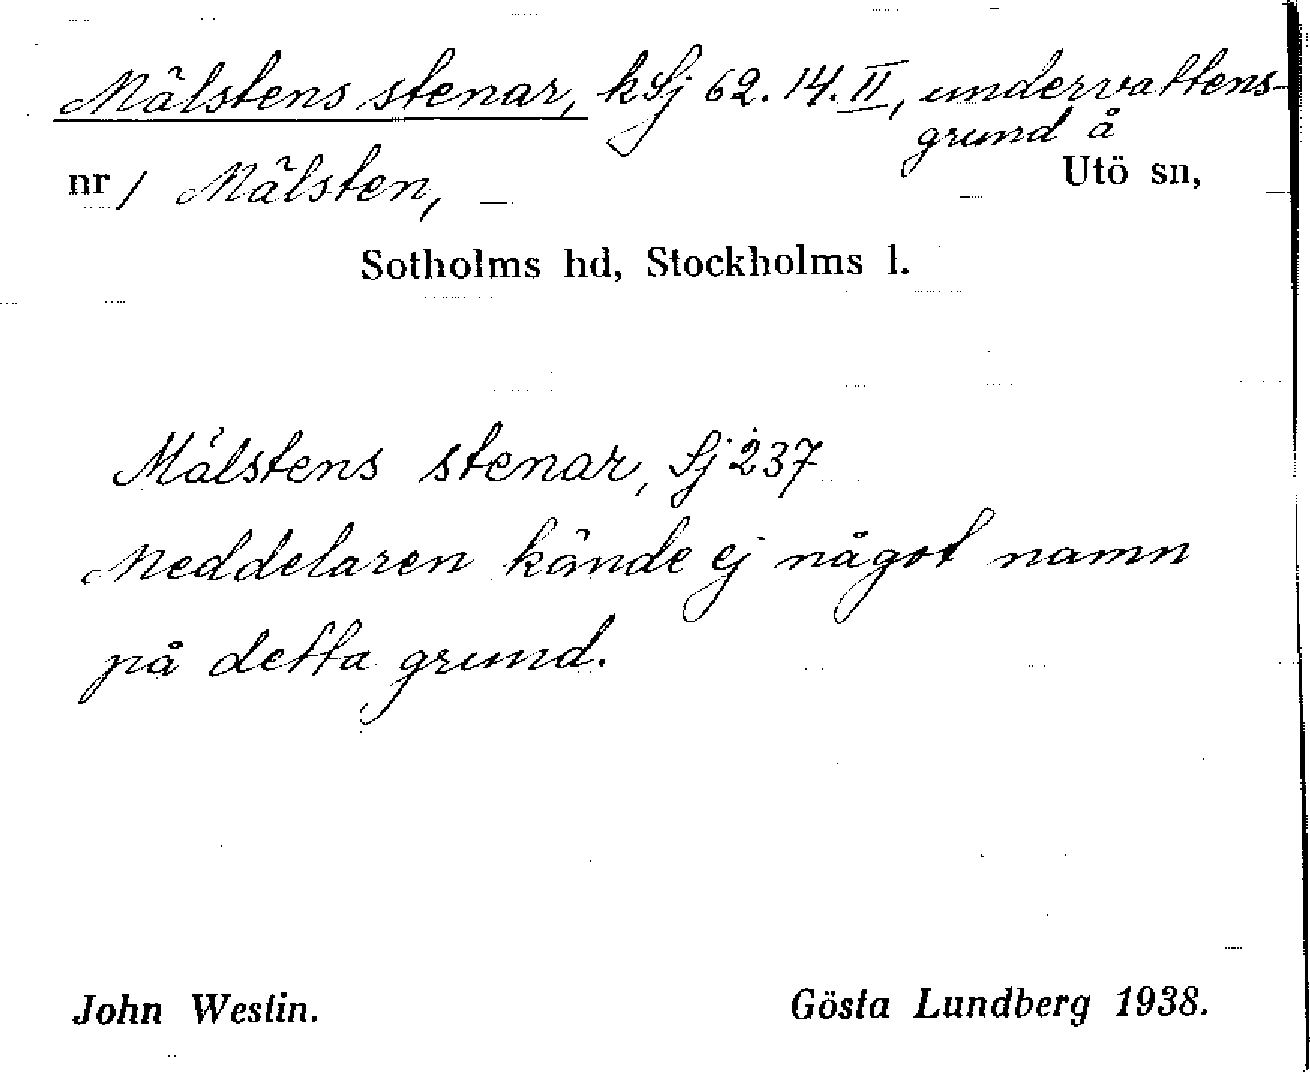 Mälstens stenar, k Sj 62. 14. II, undervattens-
grund å
nr 1 Mälsten, Utö sn,
Sotholms hd, Stockholms l.
Mälstens stenar, Sj 237
Meddelaren kände ej något namn
på detta grund.
John Westin. Gösta Lundberg 1938.